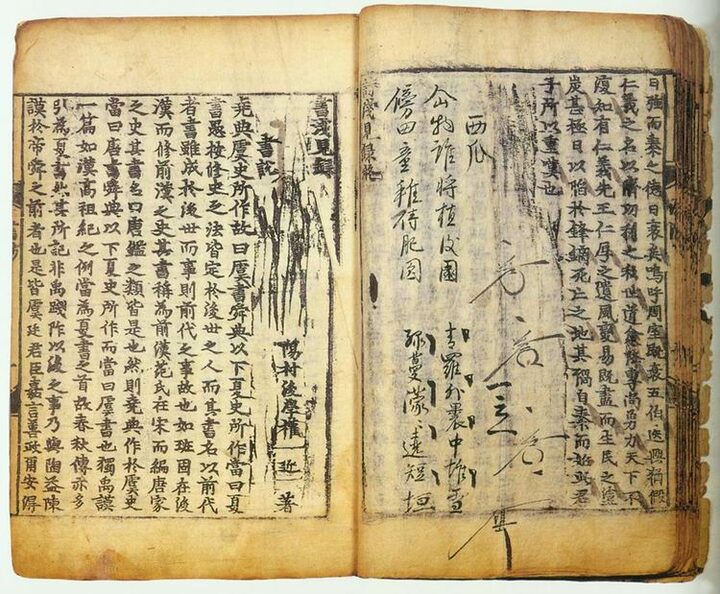 日強而秦之德日衰矣嗚呼周室既衰五伯迭興猶假
仁義之名以濟功利之私世道愈降專尚勇力天下不
復知有仁義先王仁厚之遺風變易既盡而生民之塗
炭甚極日以陷於鋒鏑死亡之地其禍自秦而始此君
子所以重嘆也
西瓜
物誰將植 國 靑羅外裹中堆雪
傍田童稚碍肥圓 短垣
淺見錄終
書淺見錄
陽村後學權 近 著
書說
堯典虞史所作故曰虞書舜典以下夏史所作當曰夏
書愚按修史之法皆定於後世之人而其書名以前代
者書雖成於後世而事則前代之事故也如班固在後
漢而修前漢之史其書稱為前漢范氏在宋而編唐家
之史其書名曰唐鑑之類皆是也然則堯典作於虞史
當曰唐書舜典以下夏史所作而當曰虞書也獨禹謨
一篇如漢高祖紀之例當為夏書之首故春秋傳亦多
引為夏書然其所記非禹踐阼以後之事乃與陶益陳
謨於帝舜之前者也是皆虞廷君臣嘉言善政用安得